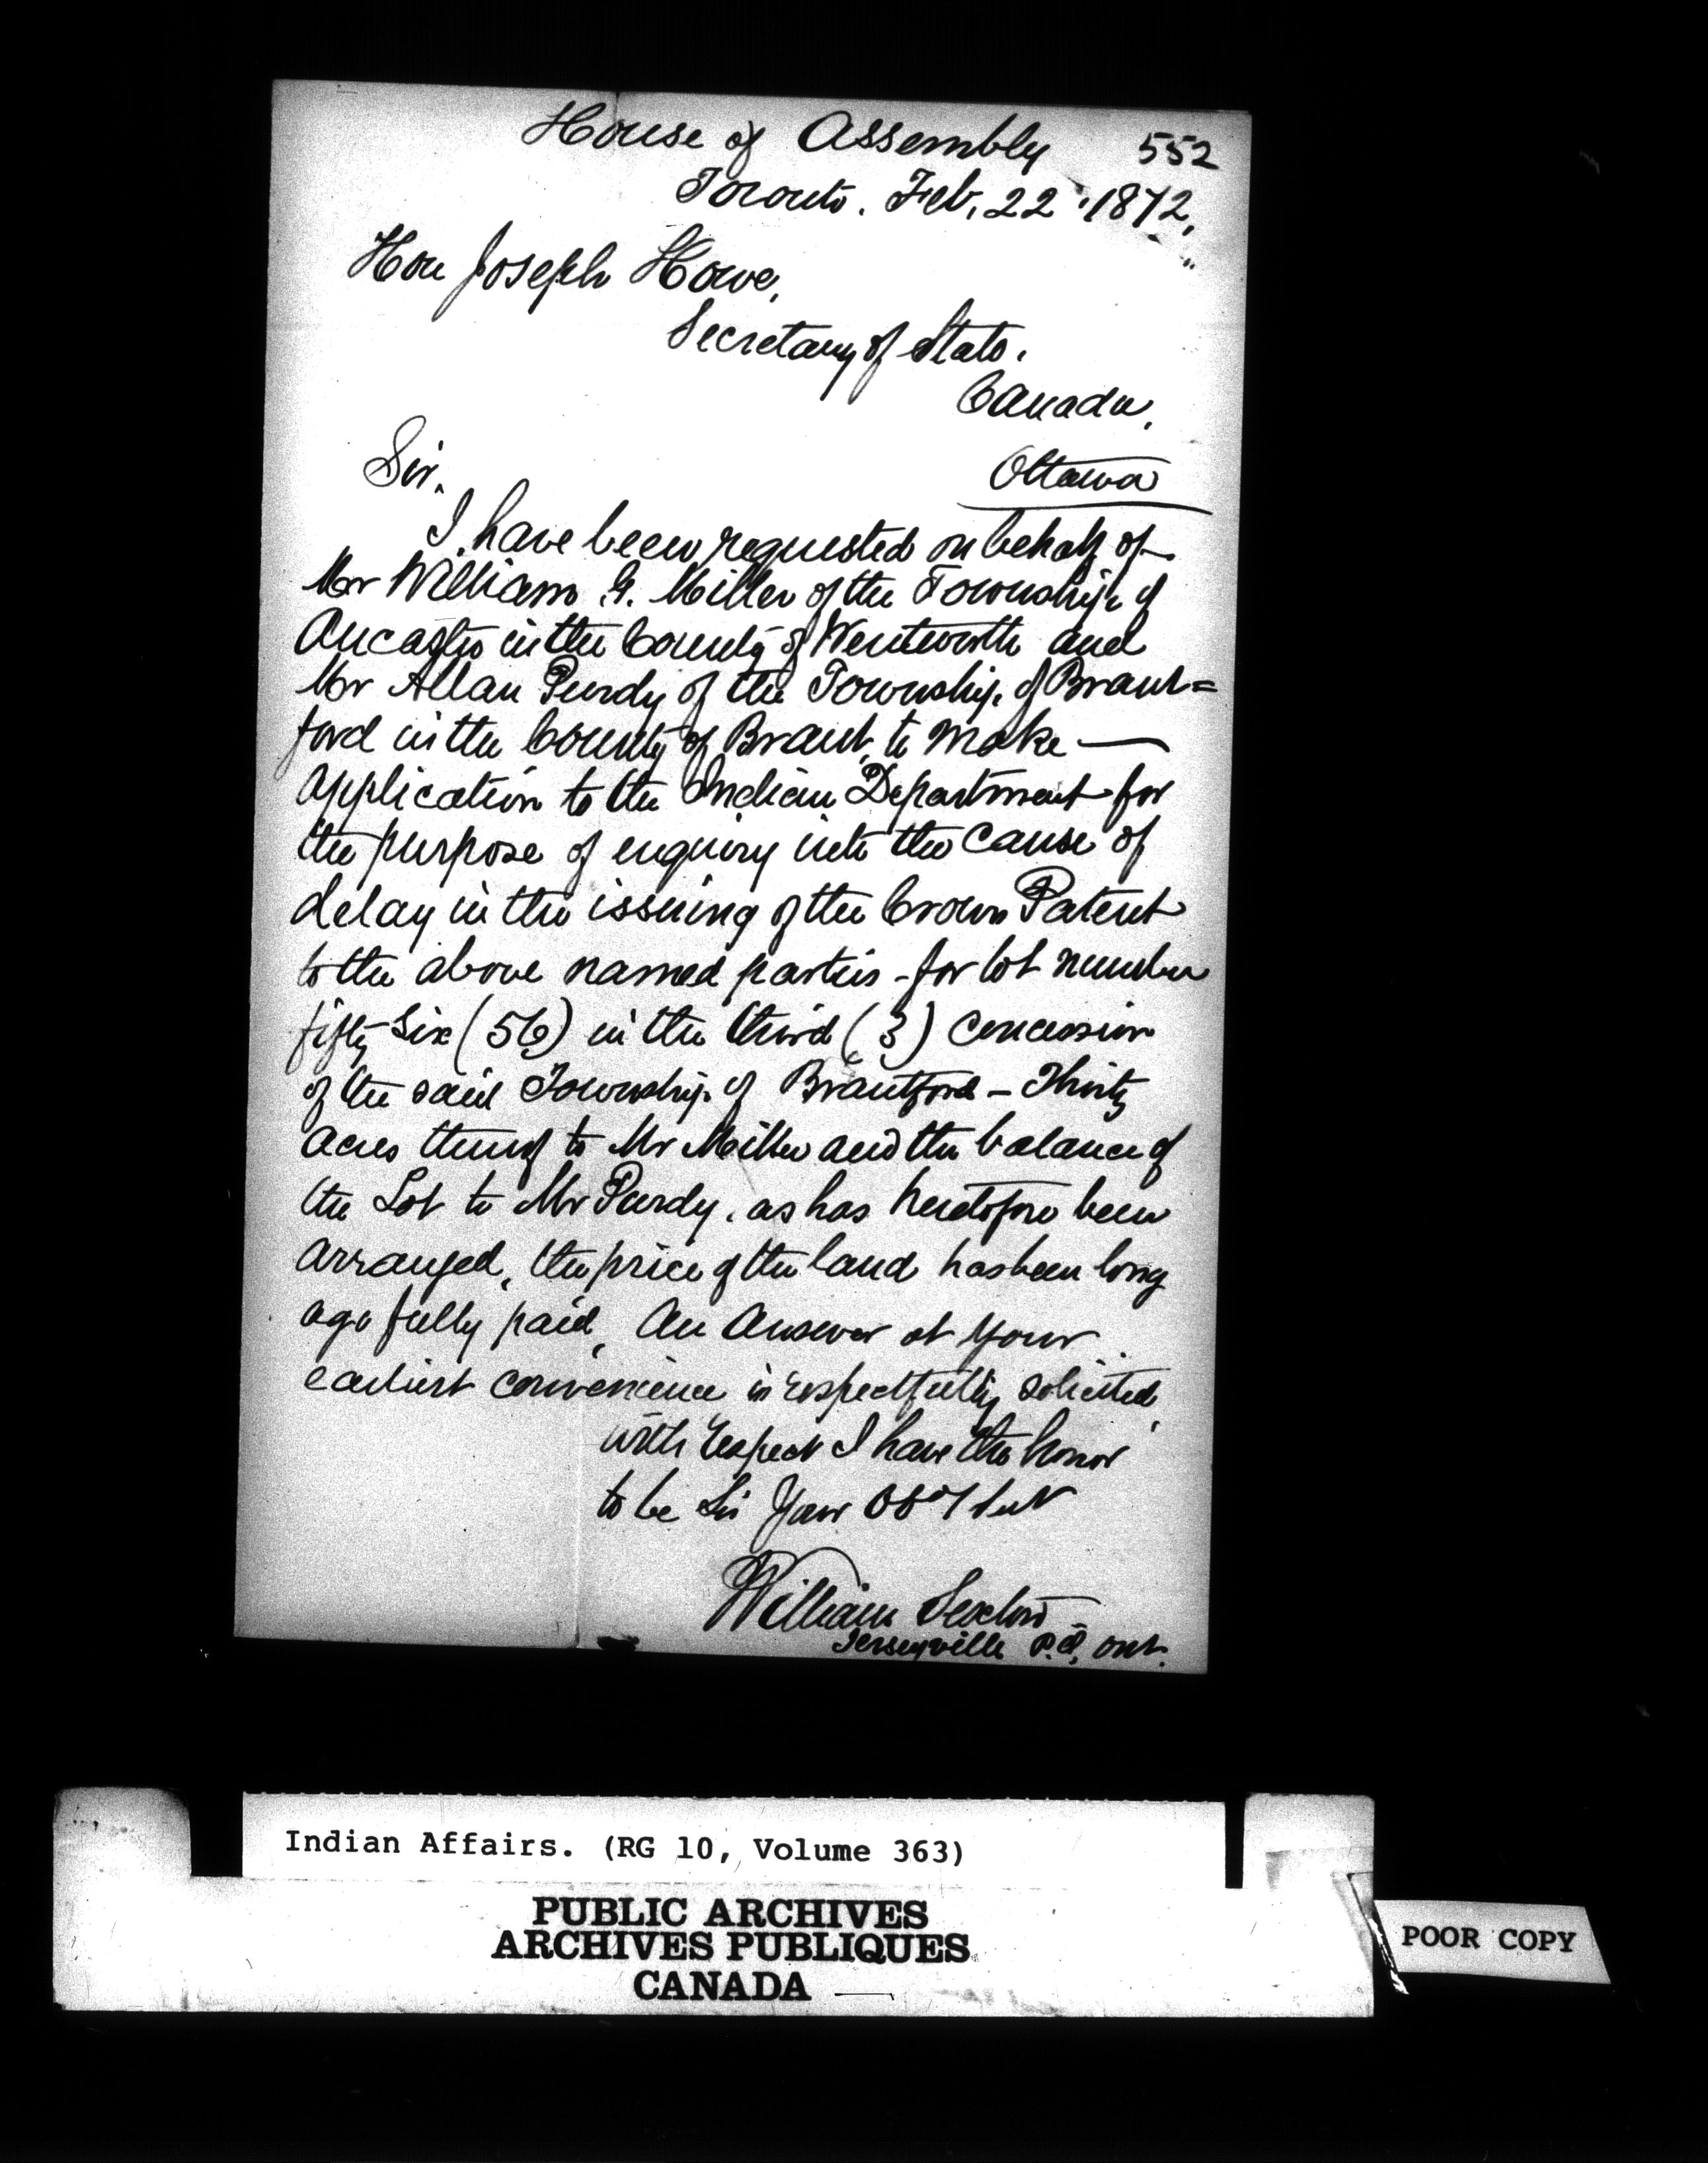 House of Assembly 552
Toronto. Feb, 22 1872,
Hon Joseph Howe,
Secretary of State.
Canada,
Ottawa
Sir.
I have been requested on behalf of
Mr William G. Miller of the Township of
Ancaster in the County of Wentworth and
Mr Allan Purdy of the Township of Brant=
ford in the County of Brant, to make —
application to the Indian Department for
the purpose of enquiry into the cause of
delay in the issuing of the Crown Patent
to the above named parties - for lot number
fifty six (56) in the third (3) concession
of the said Township of Brantford - Thirty
acres thereof to Mr Miller and the balance of
the Lot to Mr Purdy, as has heretofore been
arranged, the price of the land has been long
ago fully paid, An Answer at your
earliest convenience is respectfully solicited,
with respect I have the honor
to be Sir Your Obt Svt
William Sexton
Jerseyville P.O, Ont.
Indian Affairs. (RG 10, Volume 363)
PUBLIC ARCHIVES
ARCHIVES PUBLIQUES
CANADA
POOR COPY